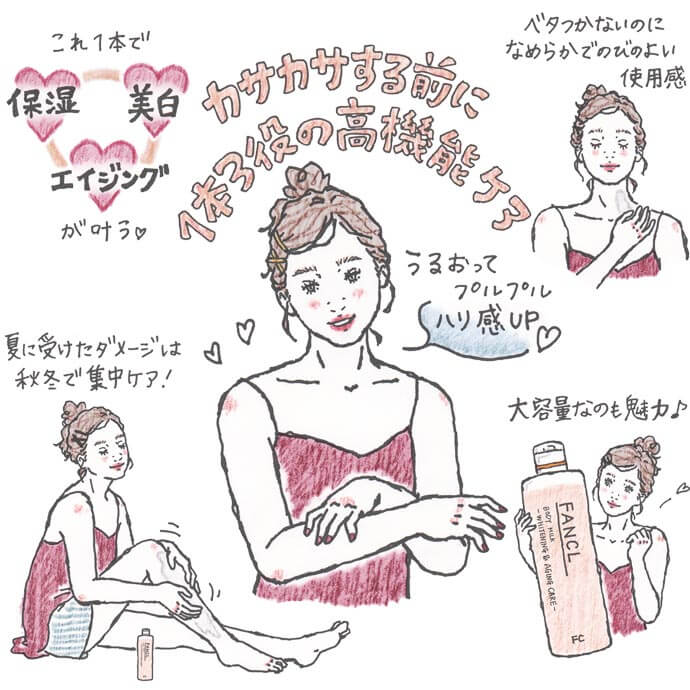 これ1本で
保湿 美白
エイジング
が叶う♡
カサカサする前に
1本3役の高機能ケア
ベタつかないのに
なめらかでのびのよい
使用感
うるおって
プルプル
ハリ感UP
夏に受けたダメージは
秋冬で集中ケア!
大容量なのも魅力♪
FANCL
BODY MILK
-WHITENING & AGING CARE-
FC
FANCL